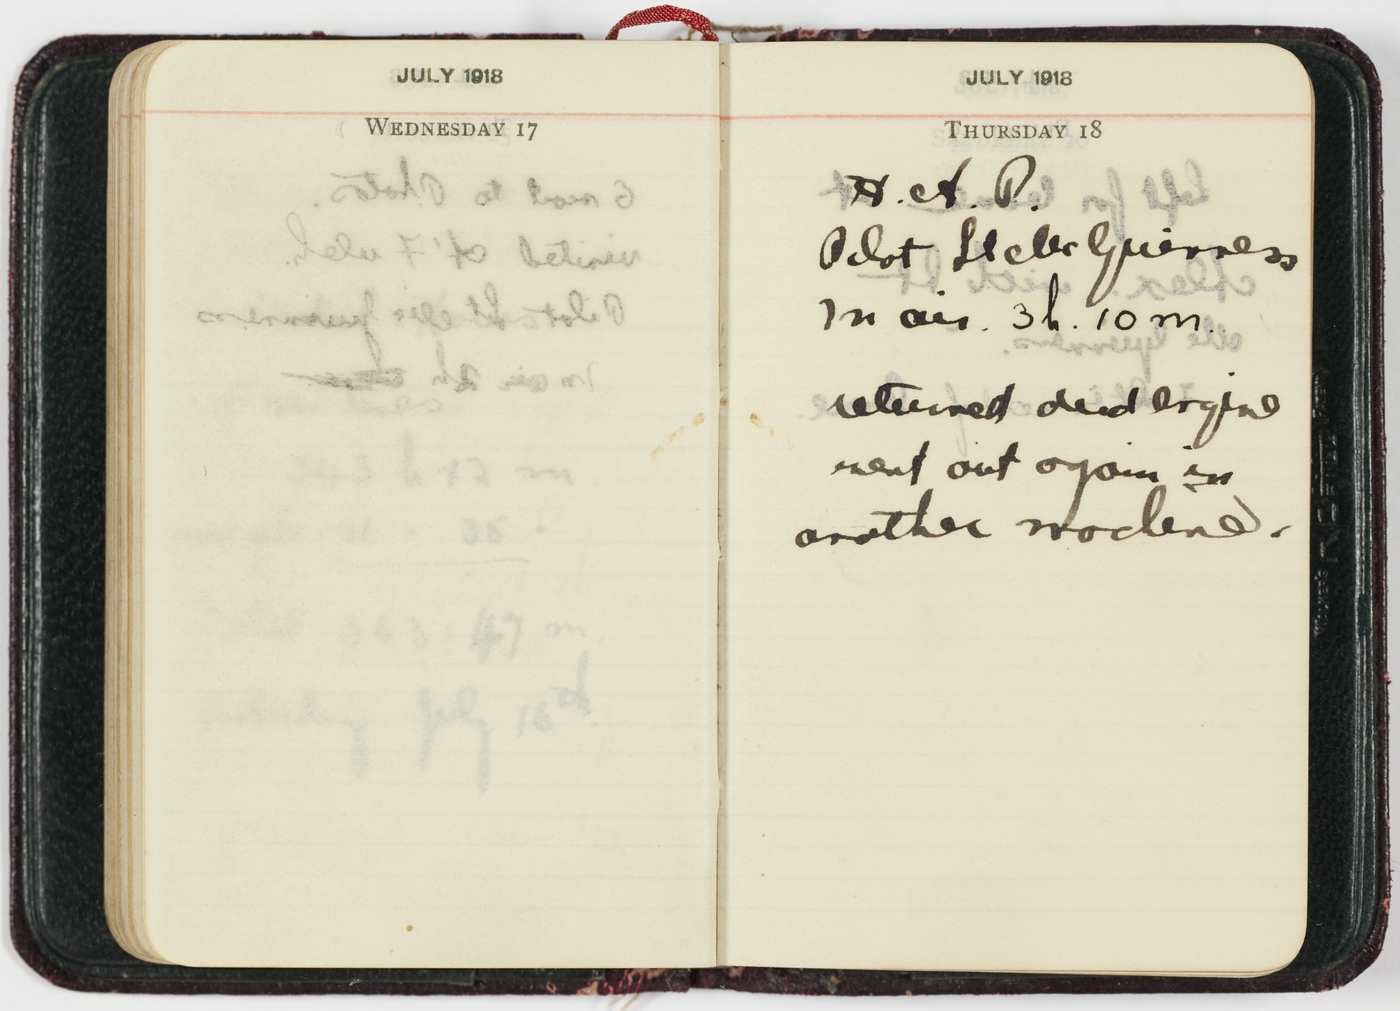 JULY 1918
WEDNESDAY 17
JULY 1918
THURSDAY 18
H. A. P.
Pilot Lt de Guerness
In air. 3h. 10 m.
returned dead engine
went out again in
another machine.